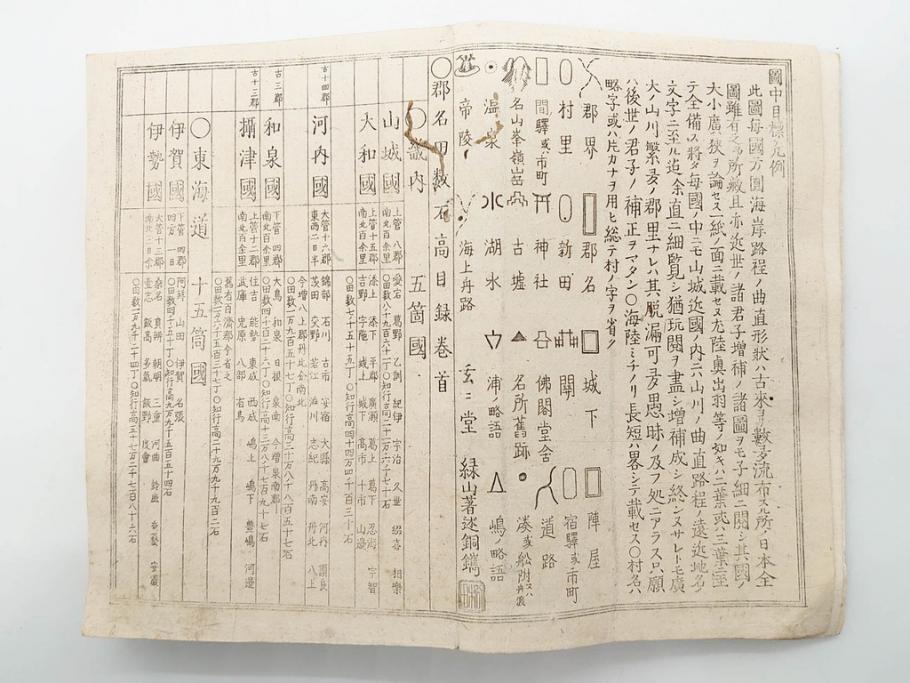 圖中目標凡例
此圖毎國方圓海岸路程ノ曲直形狀ハ古來ヨリ數多流布スル所ノ日本全
圖雖有之所數且亦近世ノ諸君子増補ノ諸圖ヲモ子細ニ閲シ其國ノ
大小廣狹ヲ論セス一紙ノ面ニ載セヌ尤陸奥出羽等ノ如キハ二葉或ハ三葉ニ至
テ全備ス將タ毎國ノ中ニモ山城近國ノ内ニハ山川ノ曲直路程ノ遠近地名ノ
文字ニ至ル迄余直ニ細覧シ猶玩閲ヲ盡シ増補成シ終ンヌサレトモ廣
大ノ山川繁多ノ郡里ナレハ其脱漏可多愚昧ノ及フ処ニアラス只願
ハ後世ノ君子ノ補正ヲマタン〇海陸ミチノリ長短ハ畧シテ載セス〇村名ハ
略字或ハ片カナヲ用ヒ総テ村ノ字ヲ省ク
郡界 郡名 城下 陣屋
村里 新田 關 宿驛或ハ市町
間驛或ハ市町 神社 佛閣堂舎 道路
名山峯嶺山岳 古墟 名所舊跡 湊或ハ舩附
温泉 湖水 浦ノ略語 嶋ノ略語
帝陵 海上舟路 玄々堂 緑山著述銅鐫
〇郡名田数石高目録巻首
〇畿内 五箇國
山城國 上管 八郡 南北百余里 愛宕 葛野 乙訓 紀伊 宇治 久世 綴喜 相樂
〇田数八千九百六十一丁〇知行高二十一万六千七十石
大和國 上管十五郡 南北百余里 添上 添下 平群 廣瀬 葛上 葛下 忍海 宇智
吉野 宇陀 城上 城下 高市 十市 山邊
古十四郡 河内國 大管十六郡 東西二日半 錦部 石川 古市 安宿 大縣 高安 河内 讃良
茨田 交野 若江 渋川 志紀 丹南 丹北 八上
古三郡 和泉國 下管 四郡 南北百余里 大鳥 和泉 日根 泉南
古十三郡 攝津國 上管十二郡 南北百余里 住吉 能勢 東成 西成 嶋上 嶋下 豊嶋 河邊
武庫 兎原 八部 有馬
舊有百濟郡今省之
〇東海道 十五箇國
伊賀國 下管 四郡 四方 一日 阿拜 山田 伊賀 名張
伊勢國 大管十三郡 南北三日余 桑名 員辨 朝明 三重 河曲 鈴鹿 奄藝 安濃
壹志 飯高 多氣 飯野 度會